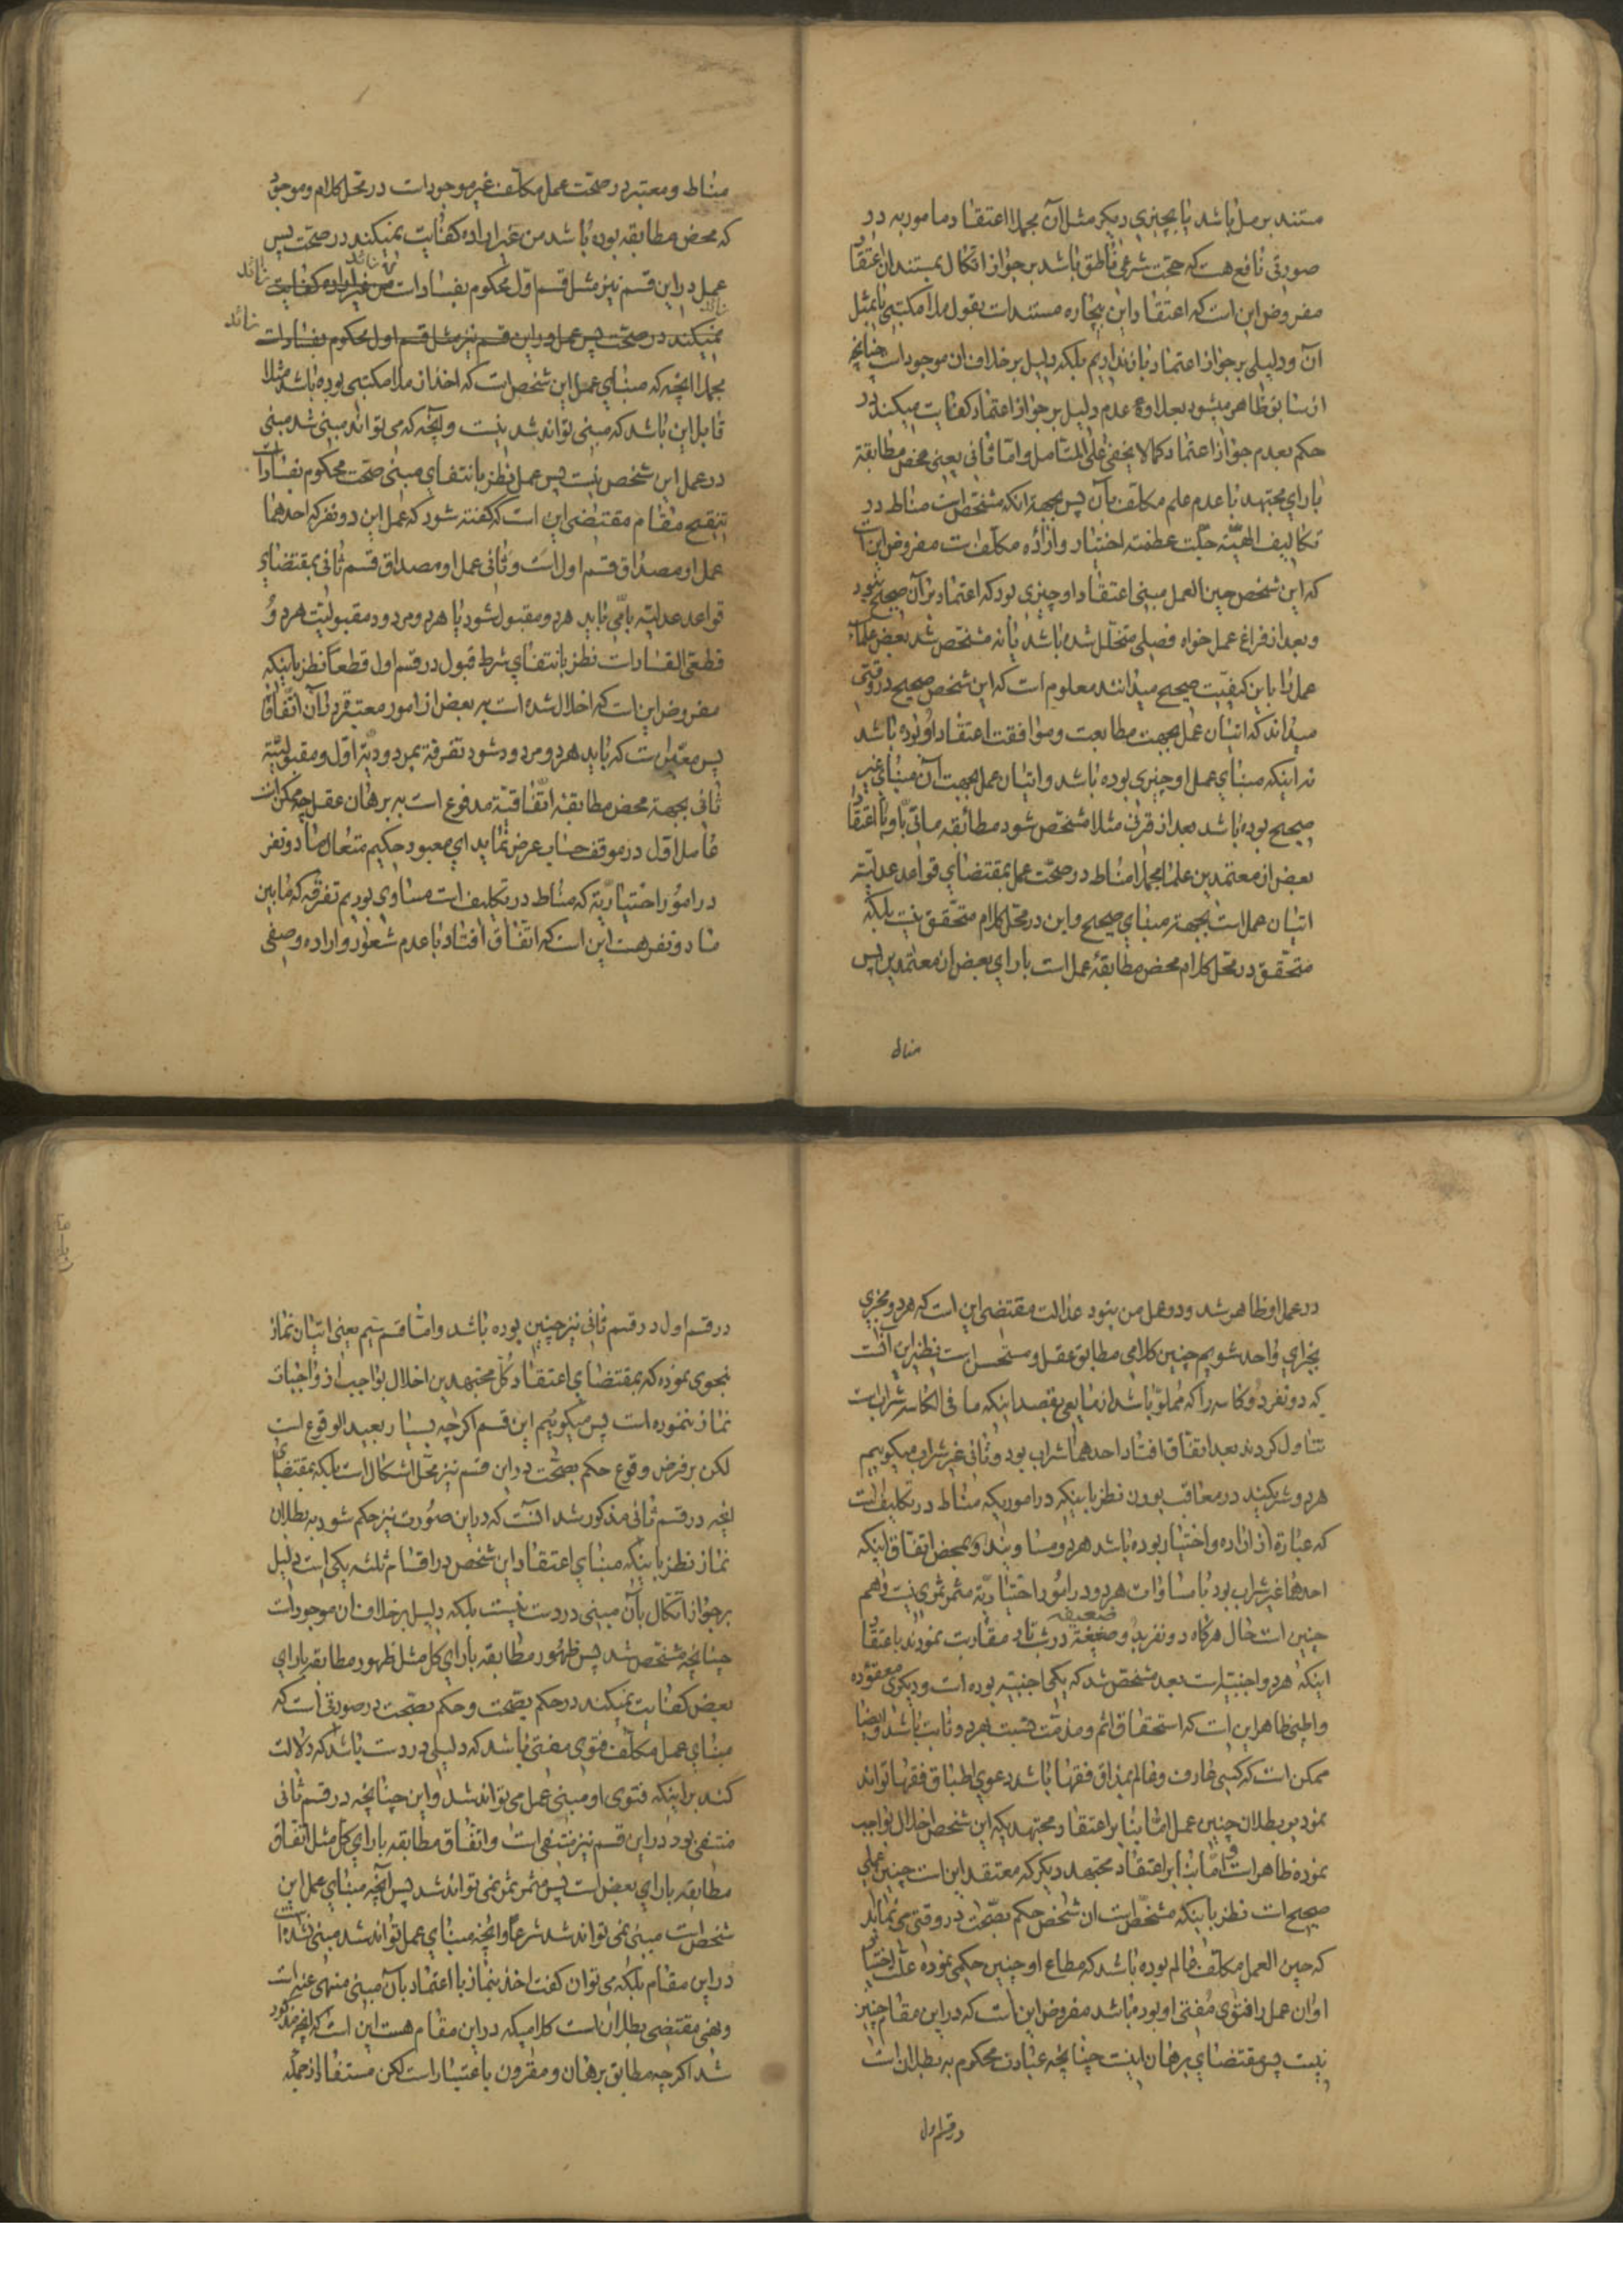 مستند برمل باشد یا بچیزی دیگر مثل آن مجملا اعتقاد مامور به در
صورتی نافع هست که حجت شرعی ناطق باشد بر جواز اتکال بمستند ان اعتقاد
مفروض این است که اعتقاد این بیچاره مستند است بقول ملا مکتبی یا بمثل
آن و دلیلی بر جواز اعتماد بآن نداریم بلکه دلیل بر خلاف ان موجود است چنانچه
از سابق ظاهر میشود بعلاوه عدم دلیل بر جواز اعتماد کفایت میکند در
حکم بعدم جواز اعتماد کما لا یخفی علی المتامل و امّا ثانی یعنی محض مطابقة
با رای مجتهد با عدم علم مکلف بآن پس بجهة انکه مشخص است مناط در
تکالیف الهیّه جلّت عظمته اختیار و اراده مکلف است مفروض این است
که این شخص حین العمل مبنی اعتقاد او چیزی بود که اعتماد بر آن صحیح نبود
و بعد از فراغ عمل خواه فصلی متخلّل شده باشد یا نه مشخص شد بعض علماء
عمل را باین کیفیّت صحیح میدانند معلوم است که این شخص صحیح در وقتی
میداند که اتیان عمل بجهت مطابعت و موافقت اعتقاد او بوده باشد
نه اینکه مبنای عمل او چیزی بوده باشد و اتیان عمل بجهت آن مبنای غیر
صحیح بوده باشد بعد از قرنی مثلا مشخص شود مطابقه ماتی به او با اعتقاد
بعض از معتمدین علما مجملا مناط در صحّت عمل بمقتضای قواعد عدلیّه
اتیان عمل است بجهة مبنای صحیح و این در محل کلام متحقّق نیست بلکه
متحقّق در محل کلام محض مطابقهٔ عمل است با رای بعض از معتمدین پس
مناط
مناط و معتبر در صحّت عمل مکلّف غیر موجود است در محل کلام و موجود
که محض مطابقه بوده باشد من غیر اراده کفایت نمیکند در صحّت پس
عمل در این قسم نیز مثل قسم اول محکوم بفساد است من غیر اراده کفایت
زائد
نمیکند در صحّت پس عمل در این قسم نیز مثل قسم اول محکوم بفساد است
زائد
مجملا انچه که مبنای عمل این شخص است که اخذ از ملا مکتبی بوده باشد مثلا
قابل این باشد که مبنی تواند شد نیست و آنچه که می تواند مبنی شد مبنی
در عمل این شخص نیست پس عمل نظر بانتفای مبنی صحّت محکوم بفساد است
تنقیح مقام مقتضی این است که گفته شود که عمل این دو نفر که احدهما
عمل او مصداق قسم اول است و ثانی عمل او مصداق قسم ثانی بمقتضای
قواعد عدلیّه یا می باید هردو مقبول شود یا هردو مردود مقبولیّت هردو
قطعی الفساد است نظر بانتفای شرط قبول در قسم اول قطعاً نظر باینکه
مفروض این است که اخلال شده است به بعض از امور معتبره در آن اتّفاقا
پس معیّن است که باید هردو مردود شود تفرقه بمردودیّة اول و مقبولیّة
ثانی بجهة محض مطابقهٔ اتّفاقیّه مدفوع است به برهان عقل چه ممکن است
عامل اول در موقف حساب عرض نماید ای معبود حکیم متعال ما دو نفر
در امور اختیاریّه که مناط در تکلیف است مساوی بودیم تفرقه که مابین
ما دو نفر هست این است که اتّفاق افتاد با عدم شعور و اراده وصفی
در عمل او ظاهر شد و در عمل من نبود عدالت مقتضی این است که هردو مجزی
بجزای واحد شویم چنین کلامی مطابق عقل و مستحسن است نظیر این آنست
که دو نفر دو کاسه را که مملوّ باشد از مایعی بقصد اینکه ما فی الکاسه شراب است
تناول کردند بعد اتفاق افتاد احدهما شراب بود و ثانی غیر شراب میگوییم
هردو شریکند در معاقب بودن نظر باینکه در اموریکه مناط در تکلیف است
که عبارة از اراده و اختیار بوده باشد هردو مساویند و بمحض اتفاق اینکه
احدهما غیر شراب بود با مساوات هردو در امور اختیاریّه مثمر ثمری نیست و هم
چنین است حال هرگاه دو نفر بدو ضعیفه در شب تار مقاربت نمودند باعتقاد
اینکه هردو اجنبیّه است بعد مشخص شد که یکی اجنبیّه بوده است و دیگری معقوده
و اطبی ظاهر این است که استحقاق اثم و مذمّت نسبت بهردو ثابت باشد و ایضا
ممکن است که کسی عارف و عالم بمذاق فقها باشد دعوی اطباق فقها تواند
نمود بر بطلان چنین عمل امّا بنا بر اعتقاد مجتهدیکه این شخص اخلال بواجب
نموده ظاهر است و امّا بنا بر اعتقاد مجتهد دیگر که معتقد این است چنین عملی
صحیح است نظر باینکه مشخّص است ان شخص حکم بصحّت در وقتی می نماید
که حین العمل مکلّف عالم بوده باشد که مطاع او چنین حکمی نموده علّت اختیار
او ان عمل را فتوی مفتی او بوده باشد مفروض این است که در این مقام چنین
نیست پس مقتضای برهان اینست چنانچه عبادت محکوم به بطلان است
در قسم اول
در قسم اول در قسم ثانی نیز چنین بوده باشد و امّا قسم سیم یعنی اتیان نماز
بنحوی نموده که بمقتضای اعتقاد کلّ مجتهدین اخلال بواجب از واجبات
نماز ننموده است پس میگوییم این قسم اگرچه بسیار بعید الوقوع است
لکن بر فرض وقوع حکم بصحّت در این قسم نیز محلّ اشکال است بلکه بمقتضای
انچه در قسم ثانی مذکور شد آنست که در این صورت نیز حکم شود به بطلان
نماز نظر باینکه مبنای اعتقاد این شخص در اقسام ثلثه یکی است دلیل
بر جواز اتّکال بآن مبنی در دست نیست بلکه دلیل بر خلاف ان موجود است
چنانچه مشخص شد پس ظهور مطابقه با رای کل مثل ظهور مطابقه با رای
بعض کفایت نمیکند در حکم بصحّت و حکم بصحّت در صورتی است که
مبنای عمل مکلّف فتوی مفتی باشد که دلیلی در دست باشد که دلالت
کند بر اینکه فتوی او مبنی عمل می تواند شد و این چنانچه در قسم ثانی
منتفی بود در این قسم نیز منتفی است و اتّفاق مطابقه با رای کل مثل اتّفاق
مطابقه با رای بعض است پس مثمر ثمر نمی تواند شد پس آنچه مبنای عمل این
شخص است مبنی نمی تواند شد شرعا و انچه مبنای عمل تواند شد مبنی نشده است
در این مقام بلکه می توان گفت اخذ نماز با اعتماد بآن مبنی منهی عنه است
و نهی مقتضی بطلان است کلامیکه در این مقام هست این است که انچه مذکور
شد اگرچه مطابق برهان و مقرون باعتبار است لکن مستفاد از جمله